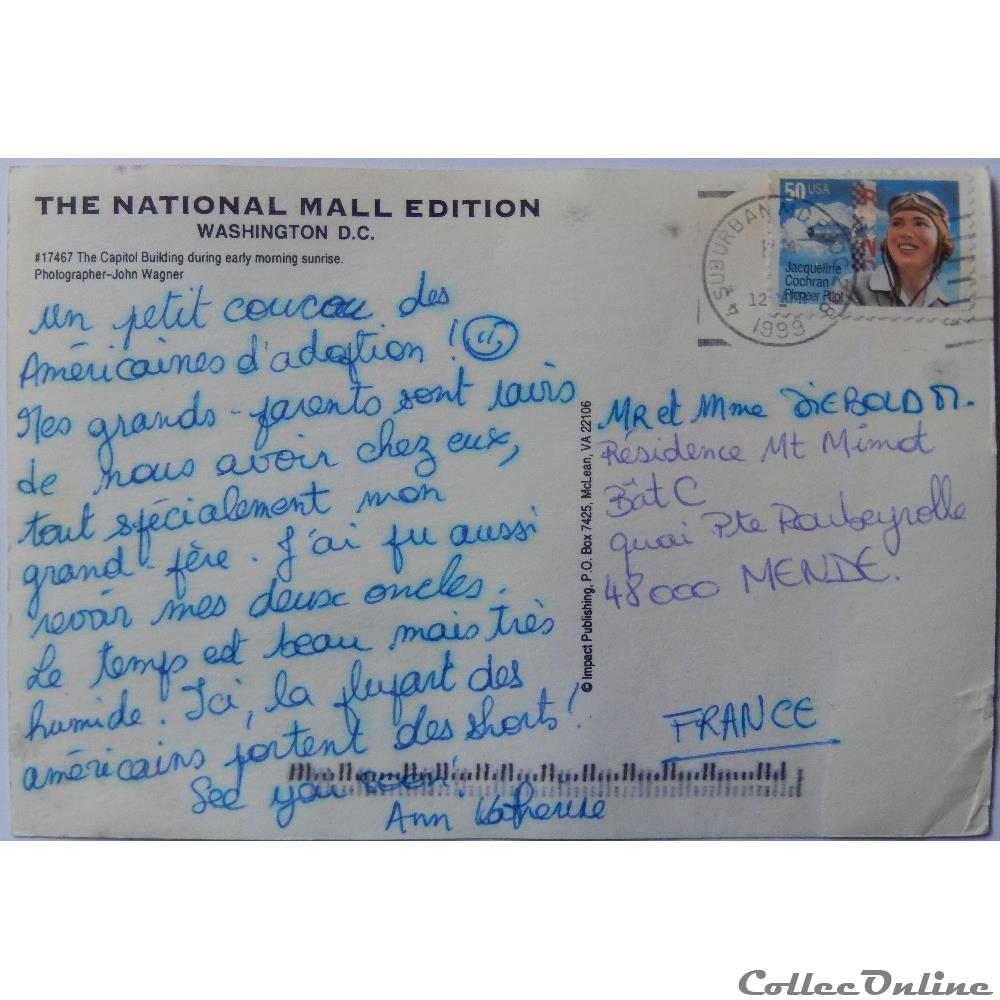 THE NATIONAL MALL EDITION
WASHINGTON D.C.
#17467 The Capitol Building during early morning sunrise.
Photographer-John Wagner
un petit coucou des
Américaines d'adoption !
Mes grands-parents sont ravis
de nous avoir chez eux,
tout spécialement mon
grand-père. J'ai pu aussi
revoir mes deux oncles.
Le temps est beau mais très
humide. Ici, la plupart des
américains portent des shorts !
See you soon !
Ann Katherine
© Impact Publishing, P.O. Box 7425, McLean, VA 22106
50 USA
Jacqueline
Cochran
Pioneer Pilot
SUBURBAN MD
PM
12
1999
MR et Mme DIEBOLD M.
Résidence Mt Mimat
Bât C
quai Pte Roubeyrolle
48000 MENDE.
FRANCE
CollecOnline